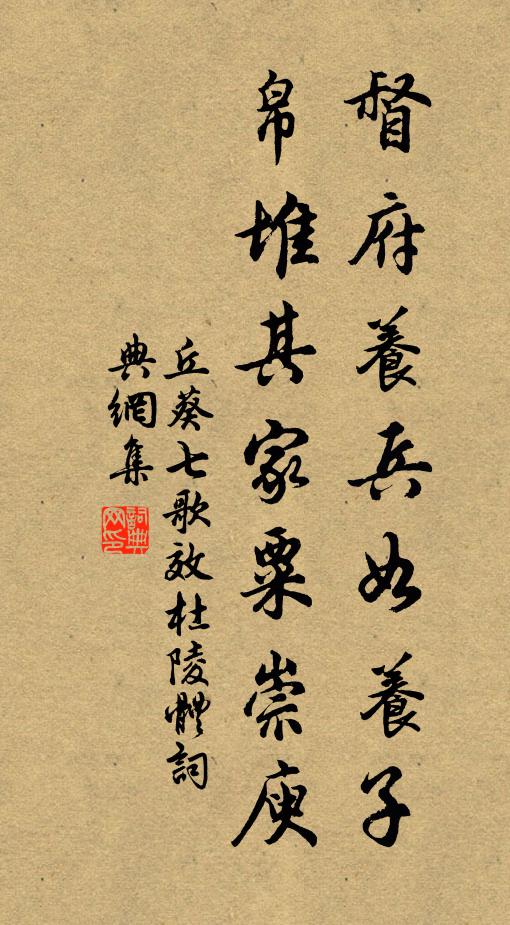 督府養兵如養子
帛堆其家粟崇庾
丘葵七歌效杜陵體詞
典網集
詞典網印